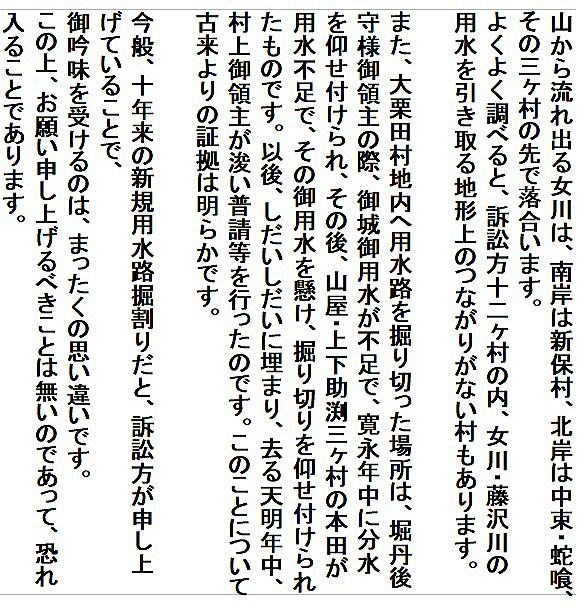 山から流れ出る女川は、南岸は新保村、北岸は中束・蛇喰、
その三ヶ村の先で落合います。
よくよく調べると、訴訟方十二ヶ村の内、女川・藤沢川の
用水を引き取る地形上のつながりがない村もあります。
また、大栗田村地内へ用水路を掘り切った場所は、堀丹後
守様御領主の際、御城御用水が不足で、寛永年中に分水
を仰せ付けられ、その後、山屋・上下助渕三ヶ村の本田が
用水不足で、その御用水を懸け、掘り切りを仰せ付けられ
たものです。以後、しだいしだいに埋まり、去る天明年中、
村上御領主が浚い普請等を行ったのです。このことについて
古来よりの証拠は明らかです。
今般、十年来の新規用水路掘割りだと、訴訟方が申し上
げていることで、
御吟味を受けるのは、まったくの思い違いです。
この上、お願い申し上げるべきことは無いのであって、恐れ
入ることであります。